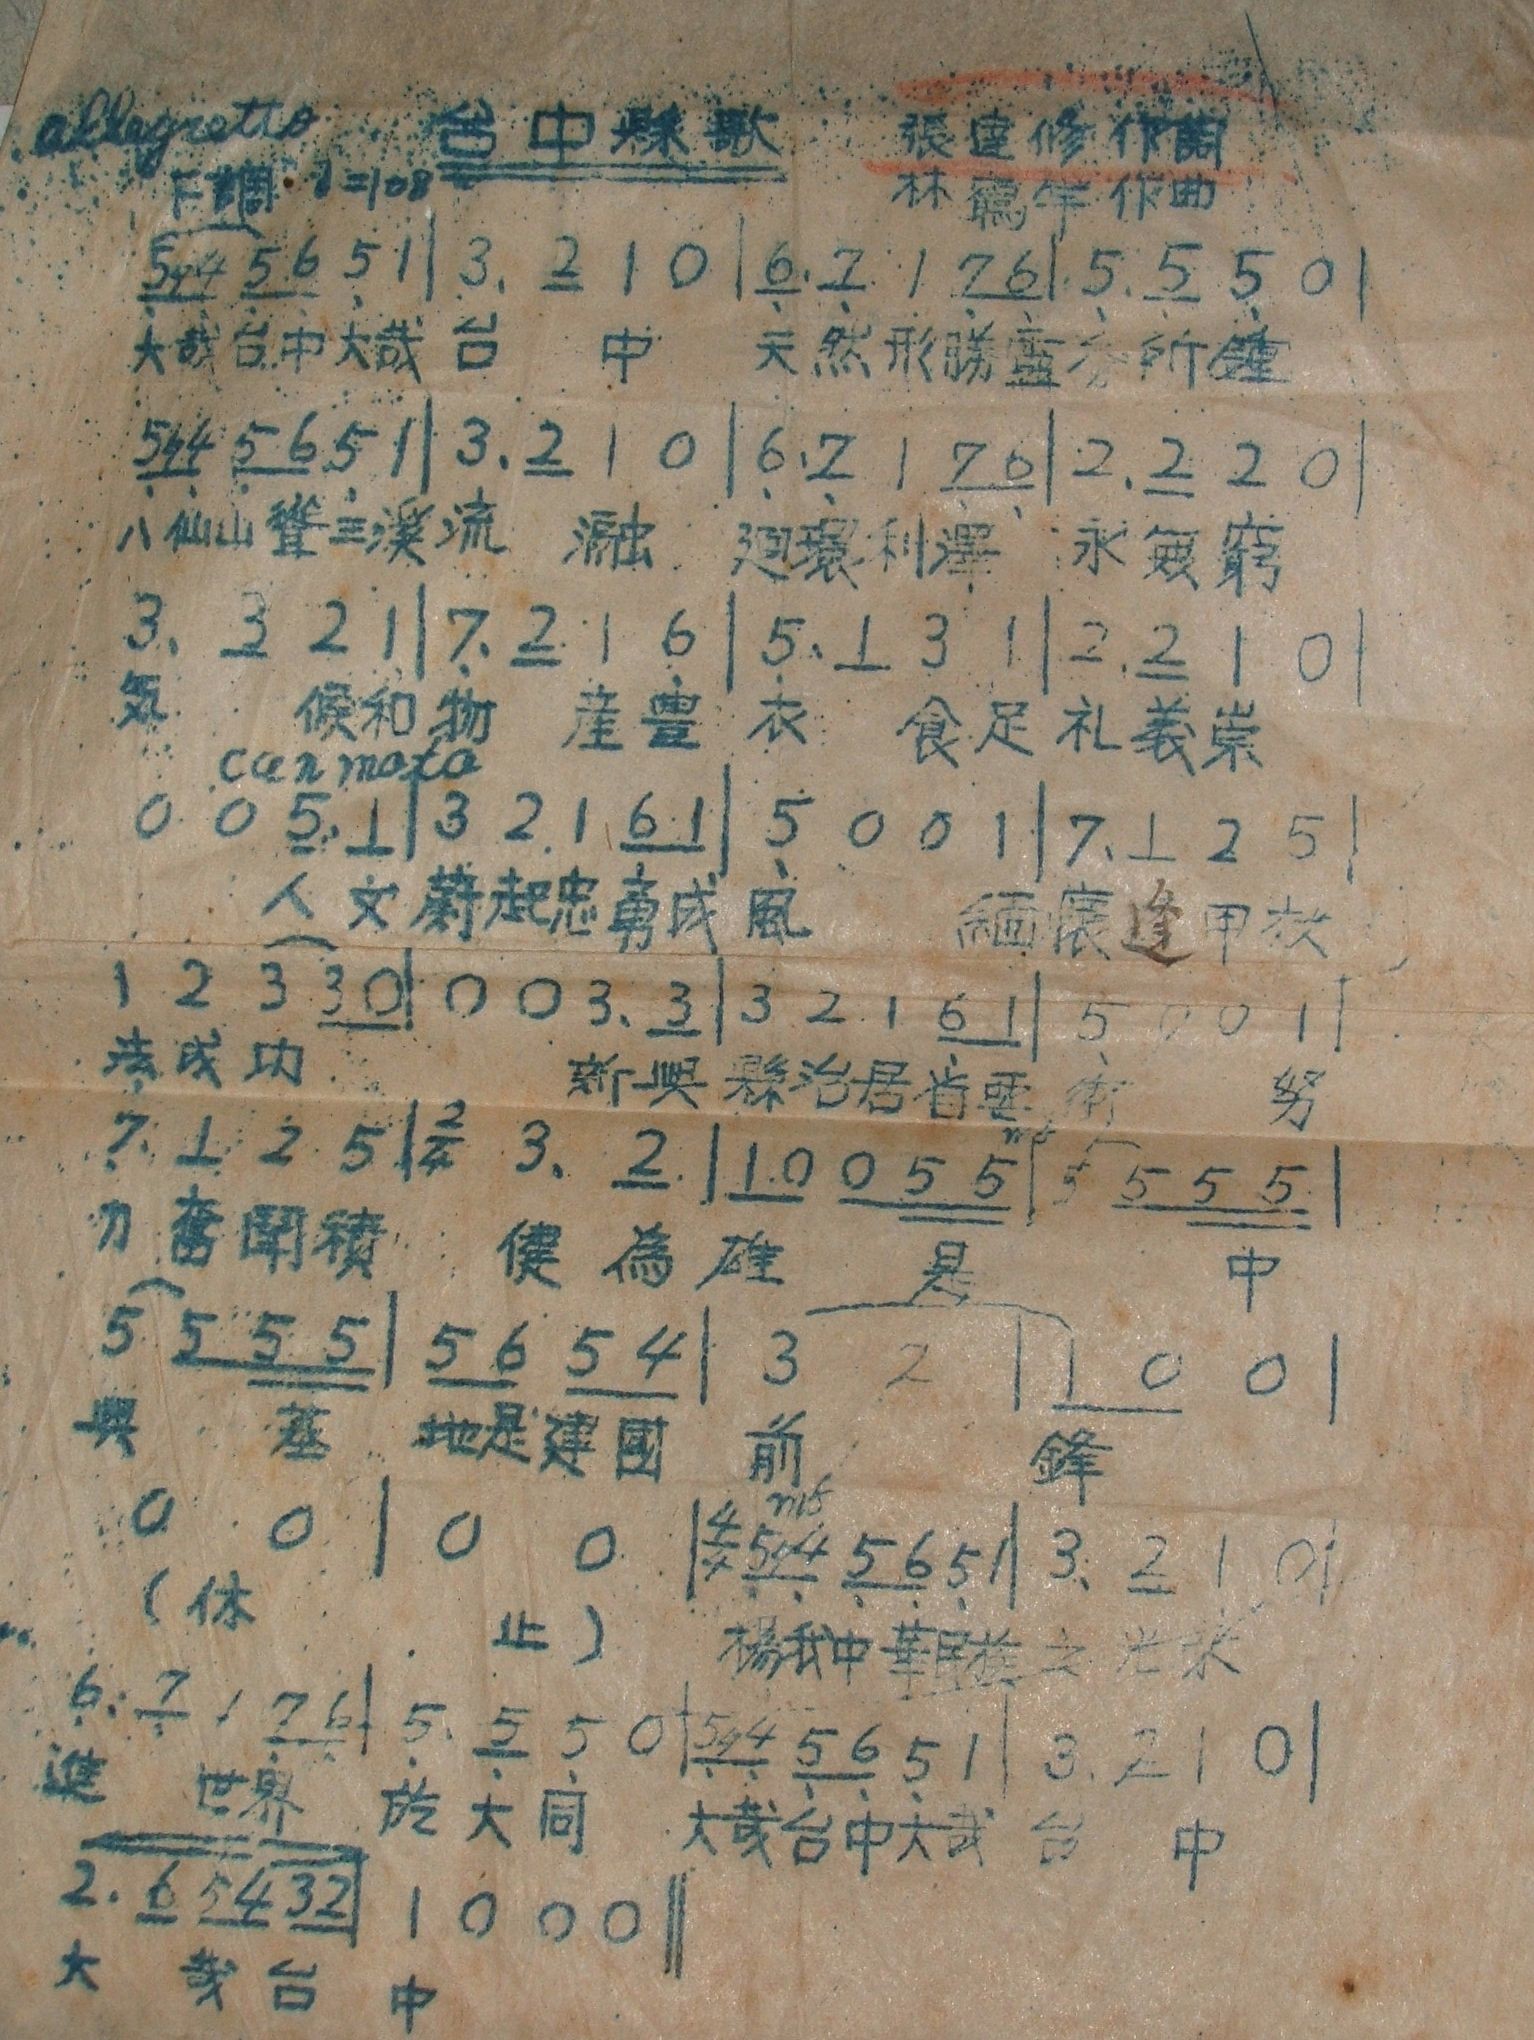 allegretto 台中縣歌 張達修作詞
F調 ♩=108 林鶴年作曲
5 4 5 6 5 1 | 3. 2 1 0 | 6. 7 1 7 6 | 5. 5 5 0 |
大哉台中大哉台中 天然形勝靈秀所鍾
5 4 5 6 5 1 | 3. 2 1 0 | 6. 7 1 7 6 | 2. 2 2 0 |
八仙山聳三溪流瀜 迴環利澤永無窮
3. 3 2 1 | 7. 2 1 6 | 5. 1 3 1 | 2. 2 1 0 |
気候和物産豊衣食足礼義崇
con moto
0 0 5. 1 | 3 2 1 6 1 | 5 0 0 1 | 7. 1 2 5 |
人文蔚起忠勇成風 緬懷逢甲
1 2 3 3 0 | 0 0 3. 3 | 3 2 1 6 1 | 5 0 0 1 |
法成功 新興縣治居省要衝 努
7. 1 2 5 | 2/4 3. 2 | 1 0 0 5 5 | 5 5 5 5 |
力奮鬪積健為雄 是中
5 5 5 5 | 5 6 5 4 | 3 2 | 1 0 0 |
興基地是建國前鋒
mf
0 0 | 0 0 | 4/4 5 4 5 6 5 1 | 3. 2 1 0 |
(休止) 楊我中華民族之光
6. 7 1 7 6 | 5. 5 5 0 | 5 4 5 6 5 1 | 3. 2 1 0 |
進世界於大同 大哉台中大哉台中
2. 6 5 4 3 2 | 1 0 0 0 ||
大哉台中